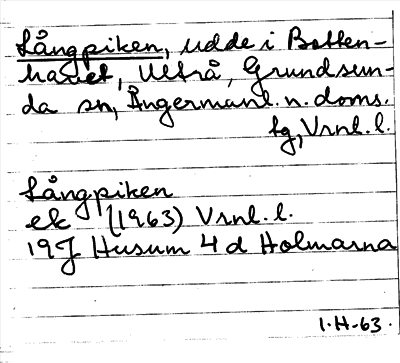 Långpiken, udde i Botten-
havet, Ultrå, Grundsun-
da sn, Ångermanl. n. doms.
tg, Vrnl. l.
Långpiken
ek (1963) Vrnl. l.
19J Husum 4d Holmarna
1.H-63.